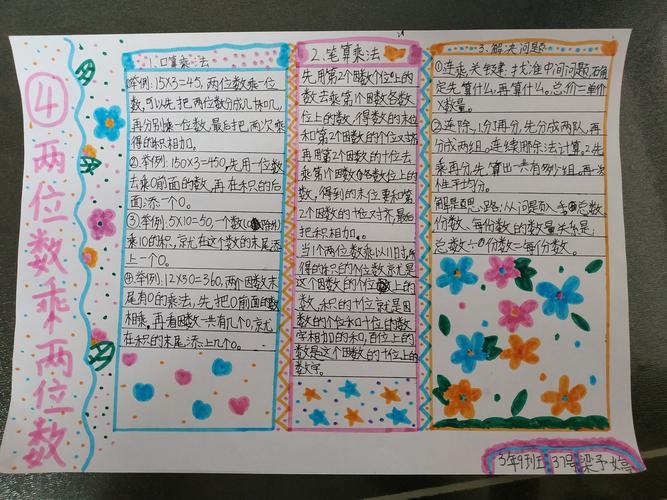 ④两位数乘两位数
1.口算乘法
①举例:15×3=45,两位数乘一位
数,可以先把两位数分成几十和几,
再分别乘一位数,最后把两次乘
得的积相加。
②举例:150×3=450,先用一位数
去乘0前面的数,再在积的后
面添一个0。
③举例:5×10=50,一个数(0除外)
乘10的积,就在这个数的末尾添
上一个0。
④举例:12×30=360,两个因数末
尾有0的乘法,先把0前面的数
相乘,再看因数一共有几个0,就
在积的末尾添上几个0。
2.笔算乘法
先用第2个因数个位上的
数去乘第1个因数各数
位上的数,得数的末位
和第2个因数的个位对齐,
再用第2个因数的十位去
乘第1个因数各数位上的
数,得到的末位要和第
2个因数的十位对齐,最后
把积相加。
当1个两位数乘以11时,所
得的积的个位数就是
这个因数的个位上的
数,积的十位就是因
数的个位和十位的数
字相加的和,百位上的
数是这个因数的十位上的
数字。
3.解决问题
①连乘,关键:找准中间问题,确
定先算什么,再算什么。总价=单价
×数量。
②连除,1.分了再分,先分成两队,再
分成两组。连续用除法计算。2.先
乘再分,先算出一共有多少组,再一次
性平均分。
解题思路:从问题入手
总数、
份数、每份数的数量关系是:
总数÷份数=每份数。
3年9班 37号梁予婷